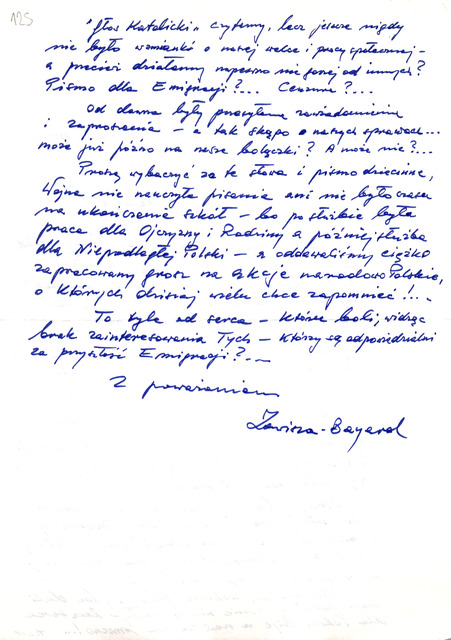 125
"Głos Katolicki" czytamy, lecz jeszcze nigdy
nie było wzmianki o naszej walce i pracy społecznej -
a przecież działamy napewno nie gorzej od innych?
Pismo dla Emigracji?... Cenzura?...
Od dawna były przesyłane zawiadomienia
i zaproszenia - a tak skąpo o naszych sprawach...
może już późno na nasze bolączki? A może nie?...
Proszę wybaczyć za te słowa i pismo dziecinne,
Wojna nie nauczyła pisania ani nie było czasu
na ukończenie szkół - bo po służbie była
praca dla Ojczyzny i Rodziny a później służba
dla Niepodległej Polski - a oddawaliśmy ciężko
zapracowany grosz na akcje narodowo Polskie,
o których dzisiaj wielu chce zapomnieć!..
To tyle od serca - które boli, widząc
brak zainteresowania Tych - którzy są odpowiedzialni
za przyszłość Emigracji?...
Z poważaniem
Zawisza-Bayard